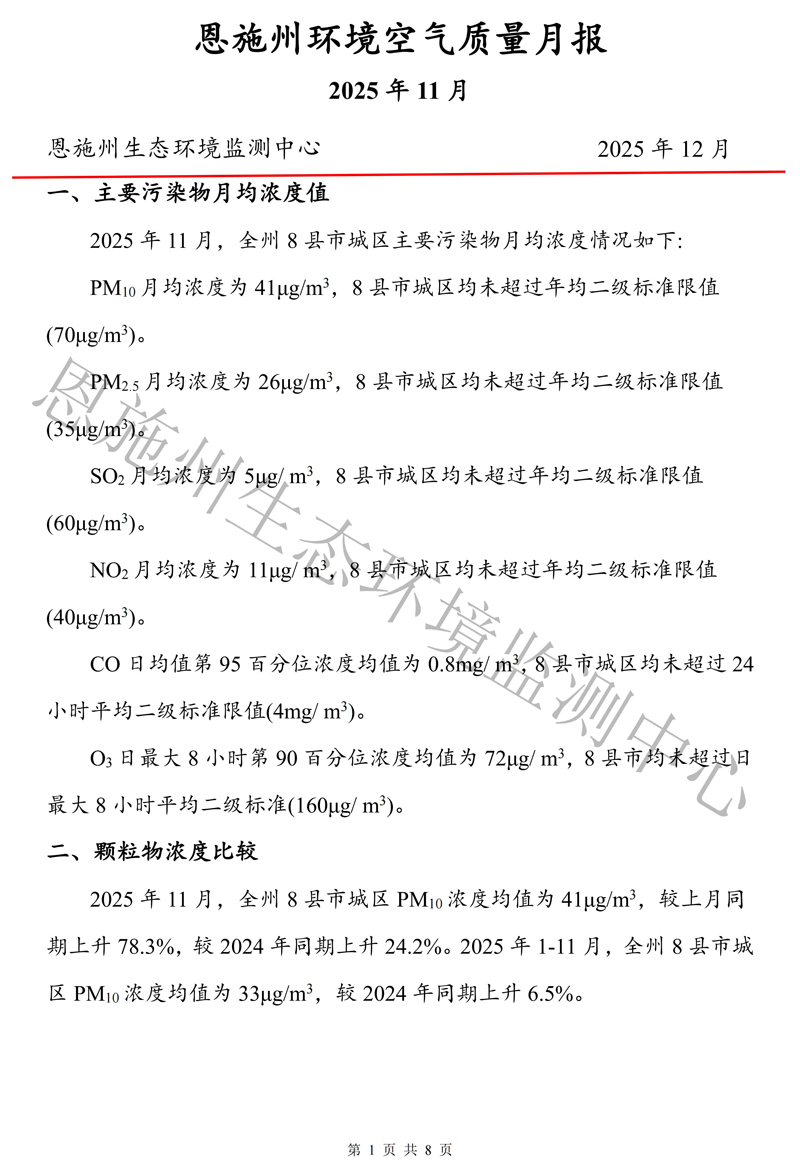 恩施州环境空气质量月报
2025 年 11 月
恩施州生态环境监测中心 2025 年 12 月
一、主要污染物月均浓度值
2025 年 11 月，全州 8 县市城区主要污染物月均浓度情况如下：
PM₁₀月均浓度为 41μg/m³，8 县市城区均未超过年均二级标准限值
(70μg/m³)。
PM₂.₅月均浓度为 26μg/m³，8 县市城区均未超过年均二级标准限值
(35μg/m³)。
SO₂月均浓度为 5μg/ m³，8 县市城区均未超过年均二级标准限值
(60μg/m³)。
NO₂月均浓度为 11μg/ m³，8 县市城区均未超过年均二级标准限值
(40μg/m³)。
CO 日均值第 95 百分位浓度均值为 0.8mg/ m³，8 县市城区均未超过 24
小时平均二级标准限值(4mg/ m³)。
O₃日最大 8 小时第 90 百分位浓度均值为 72μg/ m³，8 县市均未超过日
最大 8 小时平均二级标准(160μg/ m³)。
二、颗粒物浓度比较
2025 年 11 月，全州 8 县市城区 PM₁₀浓度均值为 41μg/m³，较上月同
期上升 78.3%，较 2024 年同期上升 24.2%。2025 年 1-11 月，全州 8 县市城
区 PM₁₀浓度均值为 33μg/m³，较 2024 年同期上升 6.5%。
恩施州生态环境监测中心
第 1 页 共 8 页